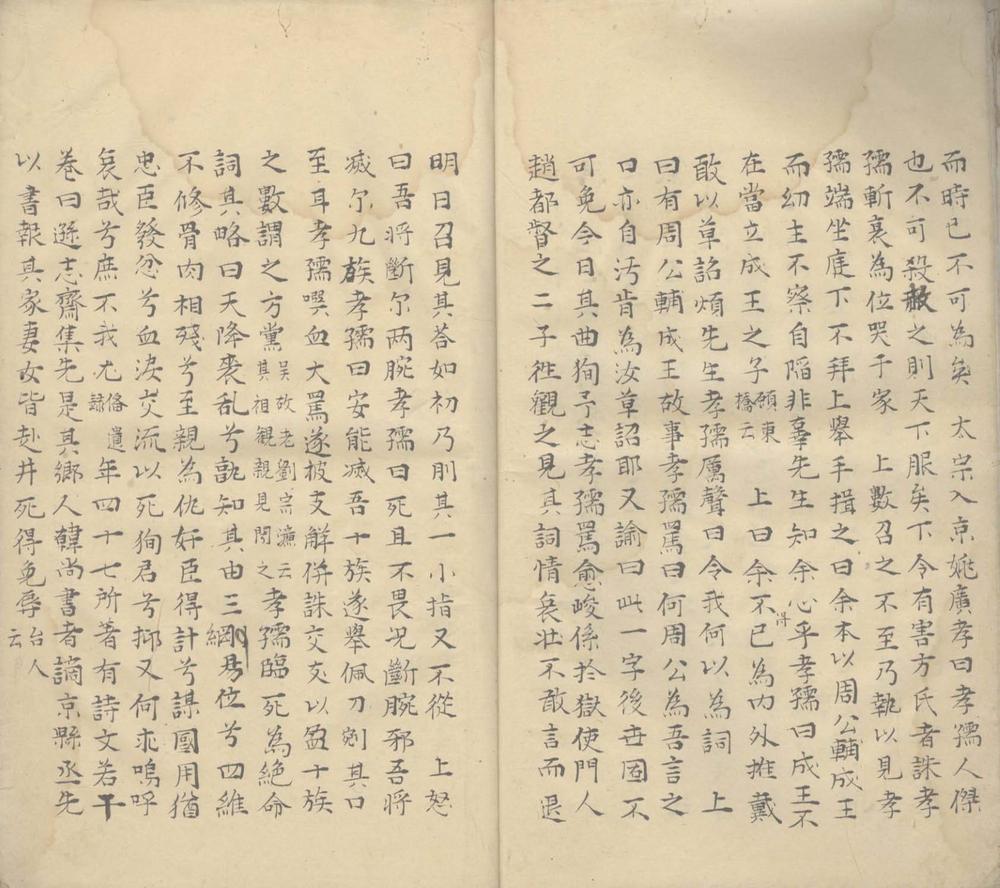 而時已不可為矣　太宗入京姚廣孝曰孝孺人傑
也不可殺赦之則天下服矣下令有害方氏者誅孝
孺斬衰為位哭于家　上數召之不至乃執以見孝
孺端坐庭下不拜上舉手揖之曰余本以周公輔成王
而幼主不察自陷非辜先生知余心乎孝孺曰成王不
在當立成王之子顧東橋云　上曰余不得已為內外推戴
敢以草詔煩先生孝孺厲聲曰令我何以為詞　上
曰有周公輔成王故事孝孺罵曰何周公為吾言之
口亦自汚肯為汝草詔耶又諭曰此一字後世固不
可免今日其曲狥予志孝孺罵愈峻係於獄使門人
趙都督之二子徃觀之見其詞情哀壯不敢言而退
明日召見其答如初乃刖其一小指又不從　上怒
曰吾將斷尔两腕孝孺曰死且不畏况斷腕邪吾將
滅尔九族孝孺曰安能滅吾十族遂舉佩刀剜其口
至耳孝孺噀血大罵遂披支解併誅交友以盈十族
之數謂之方黨吳故老劉宗濂云其祖觀親見問之孝孺臨死為絶命
詞其略曰天降喪乱兮孰知其由三綱易位兮四維
不修骨肉相殘兮至親為仇奸臣得計兮謀國用猶
忠臣發忿兮血淚交流以死狥君兮抑又何求嗚呼
哀哉兮庶不我尤備遺録年四十七所著有詩文若干
卷曰遜志齋集先是其鄉人韓尚書者謫京縣丞先
以書報其家妻女皆赴井死得免辱台人云